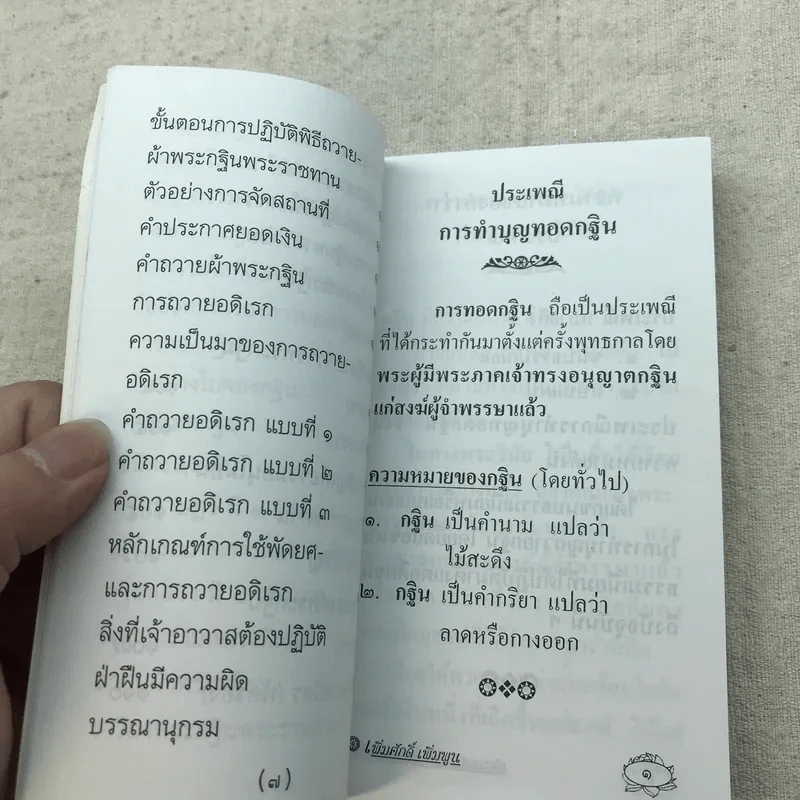 ขั้นตอนการปฏิบัติพิธีถวาย-
ผ้าพระกฐินพระราชทาน
ตัวอย่างการจัดสถานที่
คำประกาศยอดเงิน
คำถวายผ้าพระกฐิน
การถวายอดิเรก
ความเป็นมาของการถวาย-
อดิเรก
คำถวายอดิเรก แบบที่ ๑
คำถวายอดิเรก แบบที่ ๒
คำถวายอดิเรก แบบที่ ๓
หลักเกณฑ์การใช้พัดยศ-
และการถวายอดิเรก
สิ่งที่เจ้าอาวาสต้องปฏิบัติ
ฝ่าฝืนมีความผิด
บรรณานุกรม
(๗)
ประเพณี
การทำบุญทอดกฐิน
การทอดกฐิน ถือเป็นประเพณี
ที่ได้กระทำกันมาตั้งแต่ครั้งพุทธกาลโดย
พระผู้มีพระภาคเจ้าทรงอนุญาตกฐิน
แก่สงฆ์ผู้จำพรรษาแล้ว
ความหมายของกฐิน (โดยทั่วไป)
๑. กฐิน เป็นคำนาม แปลว่า
ไม้สะดึง
๒. กฐิน เป็นคำกริยา แปลว่า
ลาดหรือกางออก
เพิ่มศักดิ์ เพิ่มพูน
๑